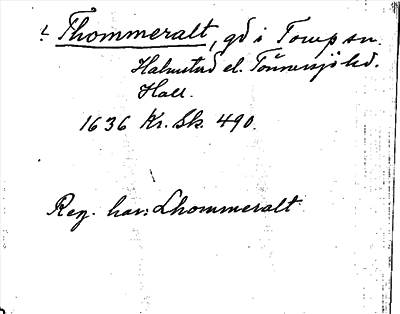 t Thommeralt, gd i Torup sn.
Halmstad el. Tönnersjö hd.
Hall.
1636 Kr. Sk. 490.
Reg. har: Lhommeralt